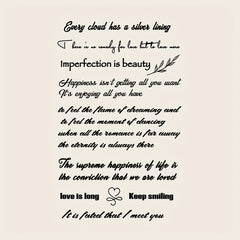 Every cloud has a silver lining
There is no remedy for love but to love more
Imperfection is beauty
Happiness isn't getting all you want
It's enjoying all you have
to feel the flame of dreaming and
to feel the moment of dancing
when all the romance is far away
the eternity is always there
The supreme happiness of life is
the conviction that we are loved
love is long Keep smiling
It is fated that I meet you